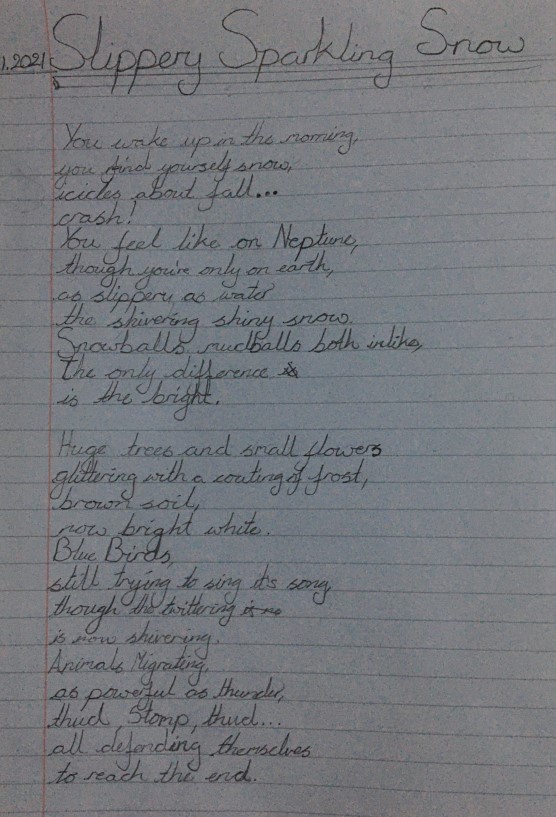 1.2021 Slippery Sparkling Snow
You wake up in the morning,
you find yourself snow,
icicles about fall...
crash!
You feel like on Neptune,
though you're only on earth,
as slippery as water
the shivering shiny snow.
Snowballs, mudballs both inlike,
The only difference
is the bright.
Huge trees and small flowers
glittering with a coating of frost,
brown soil,
now bright white.
Blue Birds,
still trying to sing it's song,
though the twittering
is now shivering.
Animals Migrating,
as powerful as thunder,
thud, Stomp, thud...
all defending themselves
to reach the end.